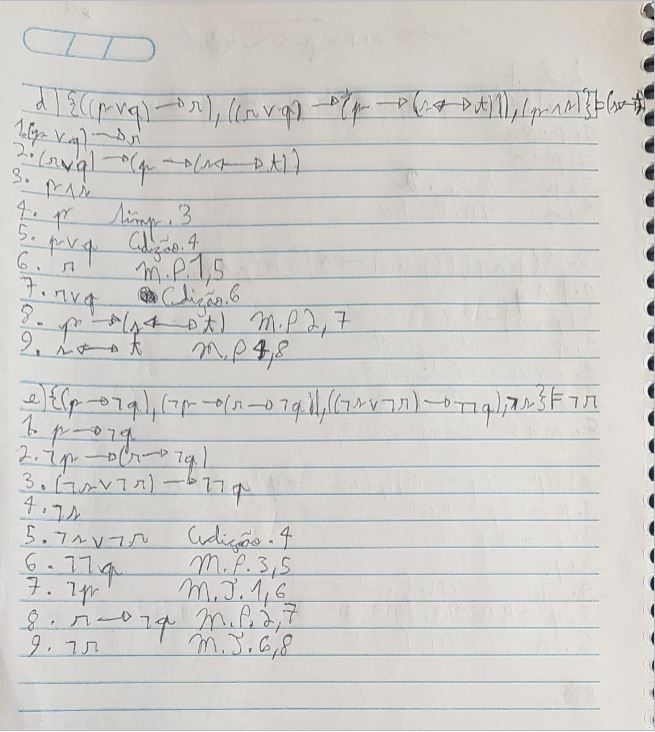 d) {((p∨q) → r), ((r∨q) → (p → (s ↔ t))), (p∧s)} ⊨ (s ↔ t)
1. (p∨q) → r
2. (r∨q) → (p → (s ↔ t))
3. p∧s
4. p Simp. 3
5. p∨q Adição. 4
6. r M.P. 1,5
7. r∨q Adição. 6
8. p → (s ↔ t) M.P 2,7
9. s ↔ t M.P 4,8
e) {(p → ¬q), (¬p → (r → ¬q)), ((¬s∨¬r) → ¬¬q), ¬s} ⊨ ¬r
1. p → ¬q
2. ¬p → (r → ¬q)
3. (¬s∨¬r) → ¬¬q
4. ¬s
5. ¬s∨¬r Adição. 4
6. ¬¬q M.P. 3,5
7. ¬p M.T. 1,6
8. r → ¬q M.P. 2,7
9. ¬r M.T. 6,8